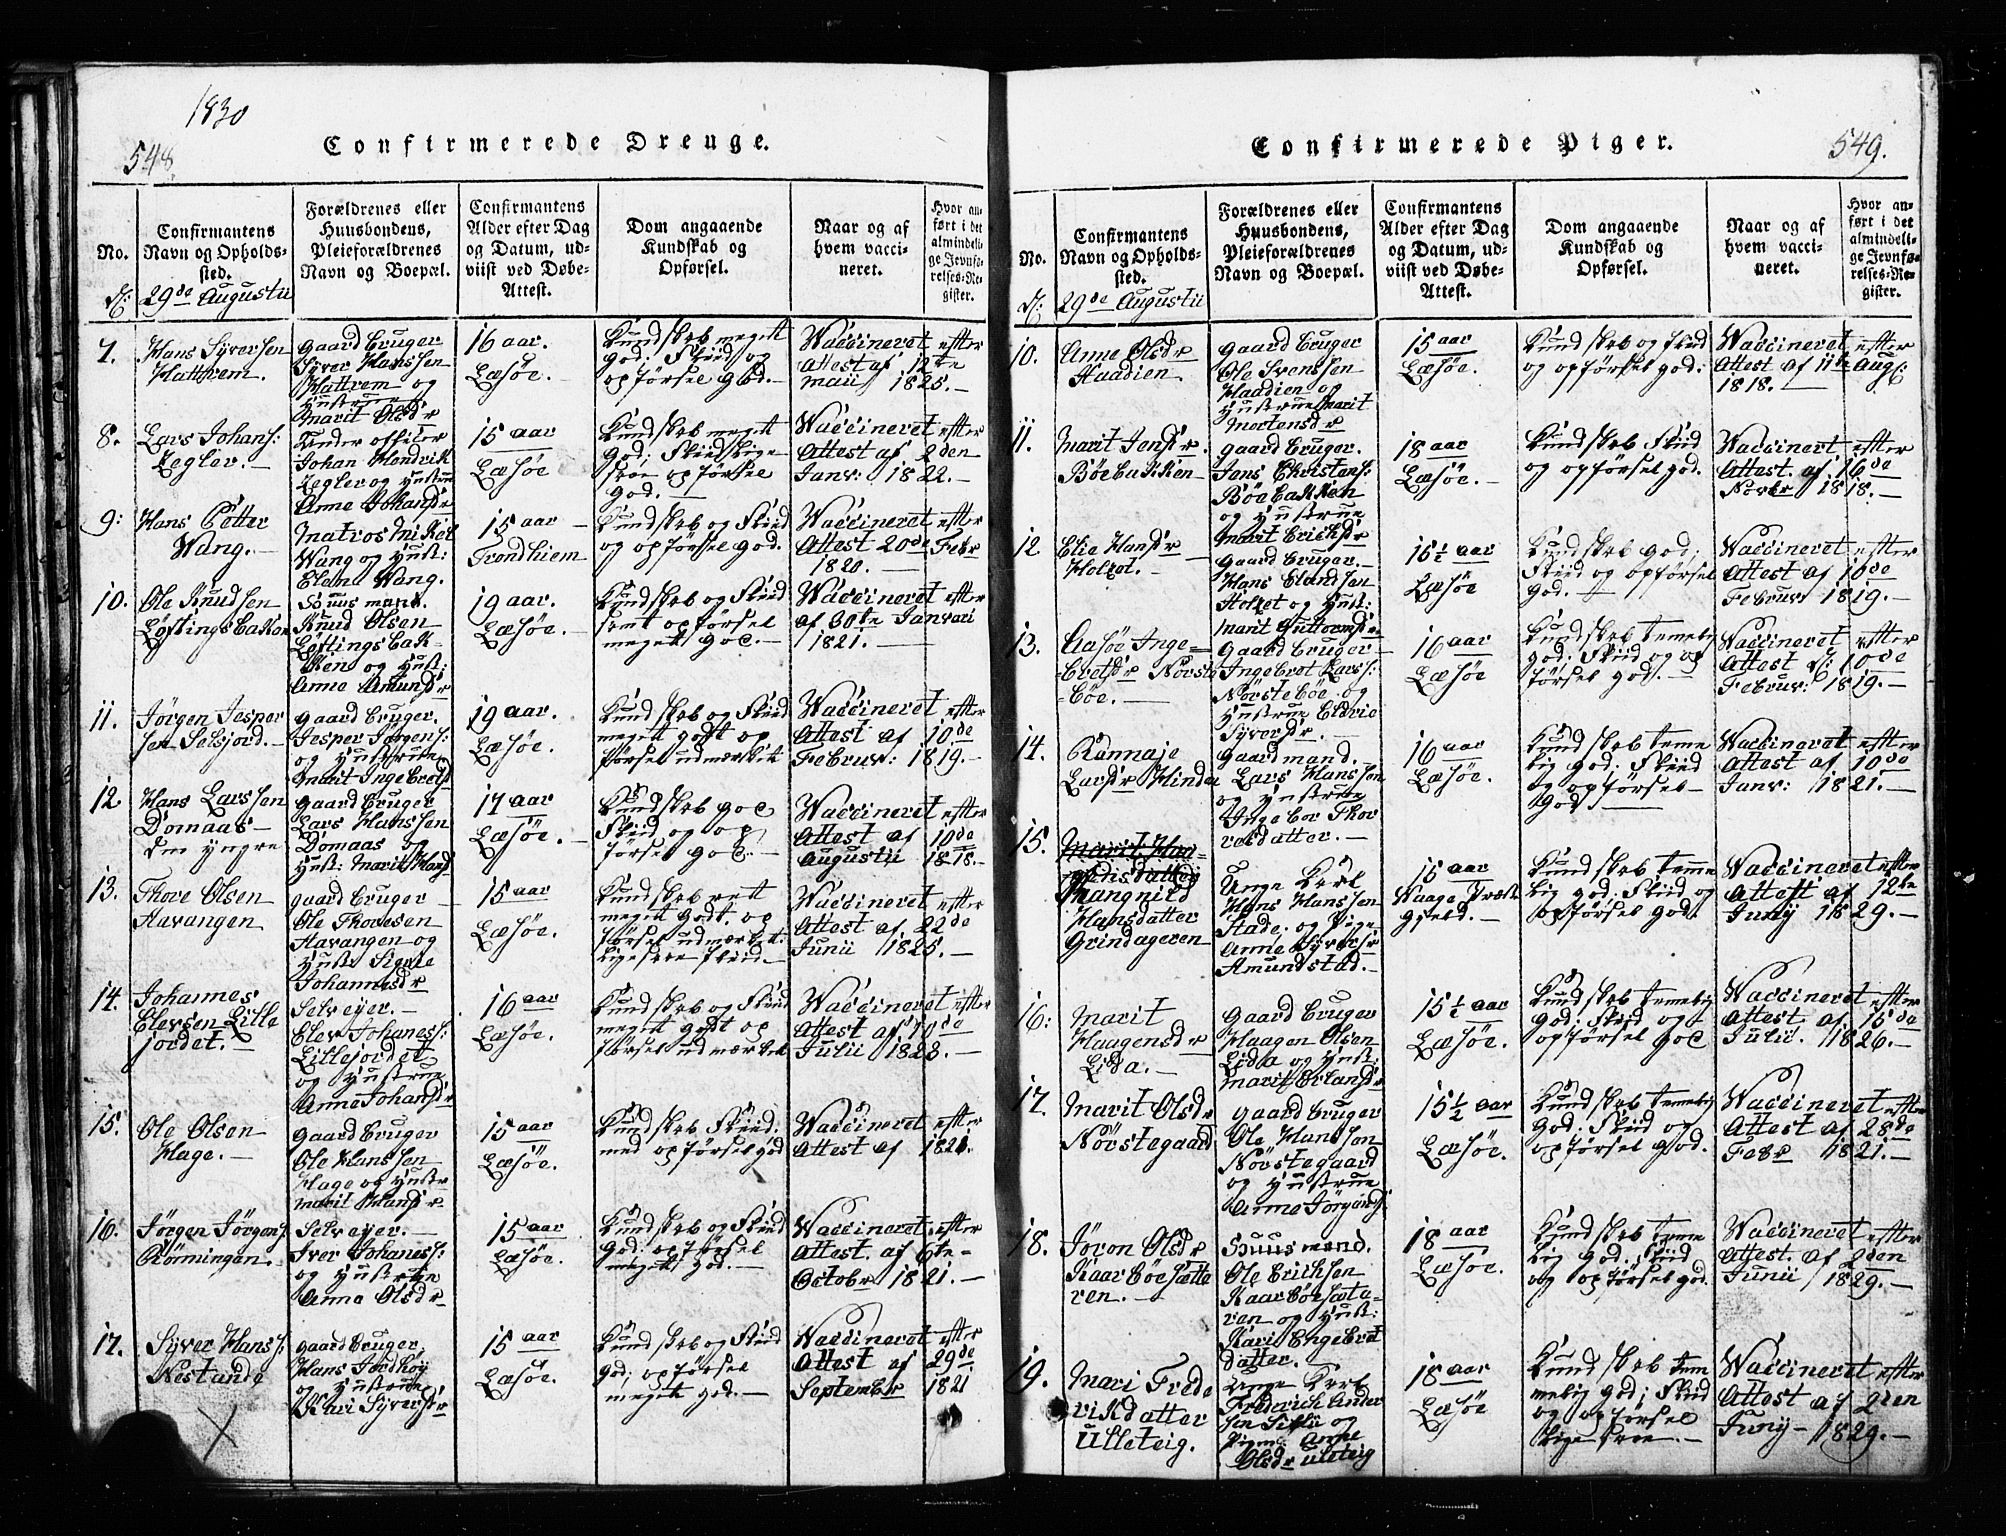 1830
548.
Confirmerede Drenge.
No.
Confirmantens
Navn og Opholds-
sted.
Forældrenes eller
Huusbondens,
Pleieforældrenes
Navn og Boepæl.
Confirmantens
Alder efter Dag
og Datum, ud-
viist ved Døbe-
Attest.
Dom angaaende
Kundskab og
Opførsel.
Naar og af
hvem vacci-
neret.
Hvor an-
ført i det
almindeli-
ge Jevnfø-
relses-Re-
gister.
29de Augustii
7.
Hans Syversen
Hattrem.
Gaard bruger
Syver Hanssen
Hattrem og
Hustrue
Marit Olsdr
16 aar.
Læsøe.
Kundskab meget
god; Fliid og
opførsel god.
Waccineret efter
Attest af 12te
Maii 1825.
8.
Lars Johans:
Zegler.
Johan Hendrik
Zegler og Hustrue
Anne Johansdr
15 aar
Læsøe
Kundskab meget
god; Fliid lige
opførsel
god.
Waccineret efter
Attest af 2den
Janv: 1822.
9:
Hans Petter
Wang.
Matros Mikel
Wang og Hust:
Wang.
15 aar
Trondhiem
Kundskab og Fliid
og opførsel god.
Waccineret efter
Attest 20de Febr
1820.
10.
Ole Knudsen
Løftingsbakken
Huusmand.
Knud Olsen
Løftingsbak-
ken og Hust:
Anne Amundsdr
19 aar.
Læsøe.
Kundskab og Fliid
samt opførsel
meget god.
Waccineret efter
Janvari
1821.
11.
Jørgen Jesper
sen Selsjord.
Gaard bruger.
Jesper Jørgens:
og Hustrue
Marit Ingebretsd
19 aar.
Læsøe.
Kundskab og Fliid
meget godt op
førsel udmærket
Waccineret efter
Attest af 10de
Februar: 1819.
12
Hans Larssen
Domaas
den yngre
Gaard bruger
Lars Hanssen
Domaas og
Hust: Marit Hansd
17 aar
Læsøe.
Kundskab god
Fliid og op
førsel god.
Waccineret efter
Attest af 10de
Augustii 1818.
13.
Thore Olsen
Havangen
Gaard bruger
Ole Thoresen
Havangen og
Hustr Signe
Johannesdr
15 aar
Læsøe.
Kundskab ret
meget godt, op
førsel udmærket
ligesom Fliid.
Waccineret efter
Attest af 22de
Junii 1825.
14.
Johannes
Elevsen Lille
jordet.
Selvejer.
Elev Johaness:
Lillejordet
og Hustrue
Anne Johansdr
16 aar
Læsøe.
Kundskab og Fliid
meget godt op
førsel udmærket
Waccineret efter
Attest af 10de
Julii 1823.
15.
Ole Olsen
Hage.
Gaard bruger
Ole Hanssen
Hage og Hustr
Marit Hansdr
15 aar
Læsøe.
Kundskab Fliid:
med opførsel god
Waccineret efter
Attest af 1821.
16.
Jørgen Jørgens:
Rønningen.
Selvejer.
Iver Johaness:
og Hustrue
Anne Olsdr
15 aar
Læsøe.
Kundskab og Fliid
god; opførsel
meget god.
Waccineret efter
Attest af 6te
Octobr 1821.
17.
Syver Hanss:
Nestande
Gaard bruger,
Hans Jordhøy
og Hustrue
Kari Syversdr
15 aar
Læsøe.
Kundskab og Fliid
god; opførsel
meget god.
Waccineret efter
Attest af 29de
September 1821
549.
Confirmerede Piger.
No.
Confirmantens
Navn og Opholds-
sted.
Forældrenes eller
Huusbondens,
Pleieforældrenes
Navn og Boepæl.
Confirmantens
Alder efter Dag
og Datum, ud-
viist ved Døbe-
Attest.
Dom angaaende
Kundskab og
Opførsel.
Naar og af
hvem vacci-
neret.
Hvor an-
ført i det
almindeli-
ge Jevnfø-
relses-Re-
gister.
29de Augustii
10.
Anne Olsdr
Haadien.
Gaard bruger
Ole Svenssen
Haadien og
Hustrue Marit
Mortensdr
15 aar
Læsøe.
Kundskab og Fliid
og opførsel god:
Waccineret efter
Attest af 11te Aug:
1818.
11.
Marit Jensdr
Böebakken
Gaard bruger.
Jens Christens:
Böebakken
og Hustrue
Marit Erichsdr
18 aar
Læsøe.
Kundskab Fliid
og opførsel god.
Waccinert efter
Attest af 16de
Novbr 1818.
12
Elie Hansdr
Holset.
Gaard bruger.
Hans Elandsen
Holset og Hust:
Marit Guttormsdr
15½ aar
Læsøe
Kundskab god;
Fliid og opførsel
god.
Waccineret efter
Attest af 10de
Februar 1819.
13.
Aasøe Inge-
bretsdr Norste
-böe.
Gaard bruger
Ingebret Lars:
Nørsteböe og
Hustrue Eldrie
Syversdr.
16 aar
Læsøe
Kundskab temelig
god; Fliid og op
førsel god.
Waccineret efter
Attest d: 10de
Februar: 1819.
14.
Rannaje
Larsdr Hindsæ
Gaardmand.
Lars Hanssen
og Hustrue
Ingebor Thor
valsdatter.
16 aar
Læsøe.
Kundskab teme
lig god; Fliid
og opførsel
god
Waccineret efter
Attest af 10de
Janv: 1821.
15.
Magnild
Hansdatter
Grindageren
Unge Kerl
Hans Hanssen
Stade; og Pige
Anne Syversdr
Amundstad.
15 aar
Waage Præste
gjeld.
Kundskab teme
lig god; Fliid og
opførsel god.
Waccineret efter
Attest af 12te
Juny 1829.
16:
Marit
Haagensdr
Lida.
Gaard bruger
Haagen Olsen
Lida og Hust:
Marit Erlandsdr
15½ aar
Læsøe.
Kundskab temelig
god; Fliid og
opførsel god
Waccineret efter
Attest af 15de
Julii. 1826.
17.
Marit Olsdr
Nørstegaard
Gaard bruger
Ole Hanssen
Nørstegaard
og Hustrue
Anne Jørgensd:
15½ aar
Læsøe.
Kundskab temelig
god; Fliid og
opførsel god.
Waccineret efter
Attest af 28de
Febr 1821.
18.
Jøron Olsdr
Kaarböesætte
ren.
Huusmand.
Ole Erichsen
Kaarböesæte-
ren og Hust:
Kari Engebret
datter.
18 aar
Læsøe.
Kundskab teme
lig god. Fliid
og opførsel god.
Waccineret efter
Attest af 2den
Junii 1829.
19.
Mari Frede
rikdatter
Ulleteig.
Unge Kerl
Frederich Ander
sen og
Pigen: Anne
Olsdr Uleteig
18 aar
Læsøe
Kundskab tem
melig god; Fliid
og opførsel
Waccineret efter
Attest af 2den
Juny 1829.